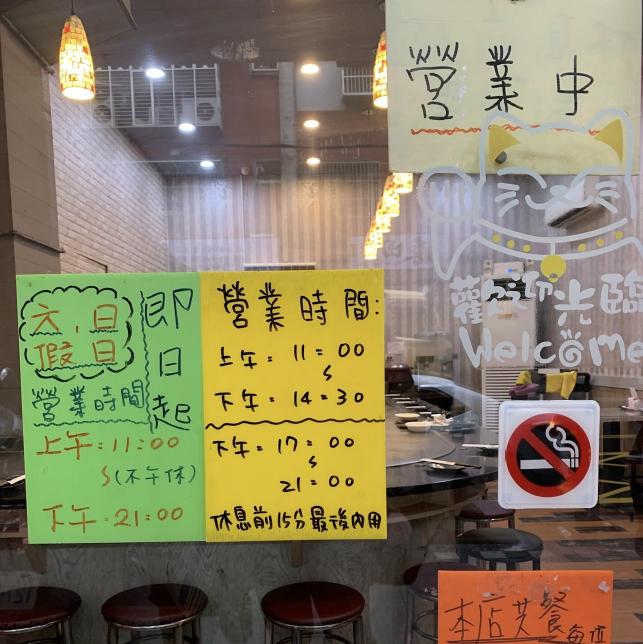 營業中
歡迎光臨
Welcome
即日起
六.日
假日
營業時間
上午:11:00
(不午休)
下午:21:00
營業時間:
上午:11:00
下午:14:30
下午:17:00
21:00
休息前15分最後內用
本店共餐
每位